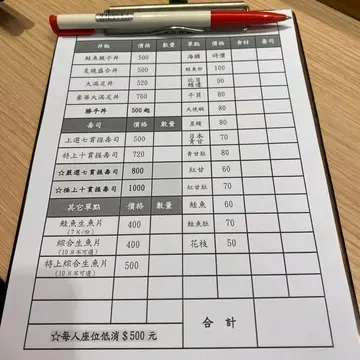 丼飯 價格 數量 單點 價格 食材 壽司
鮭魚親子丼 500 海膽 時價
炙燒盛合丼 500 鮭魚卵 100
大滿足丼 520 比目鰭邊 90
豪華大滿足丼 760 干貝 80
勝手丼 500起 大使蝦 80
壽司 價格 數量 星鰻 80
上選七貫握壽司 500 日本青甘 70
特上十貫握壽司 720 青甘肚 80
☆嚴選七貫握壽司 800 紅甘 60
☆極上十貫握壽司 1000 紅甘肚 70
其它單點 價格 數量 鮭魚 60
鮭魚生魚片 400 鮭魚肚 70
(7片/份)
綜合生魚片 400 花枝 50
(10片不可選)
特上綜合生魚片 500
(10片不可選)
☆每人座位低消$500元 合計